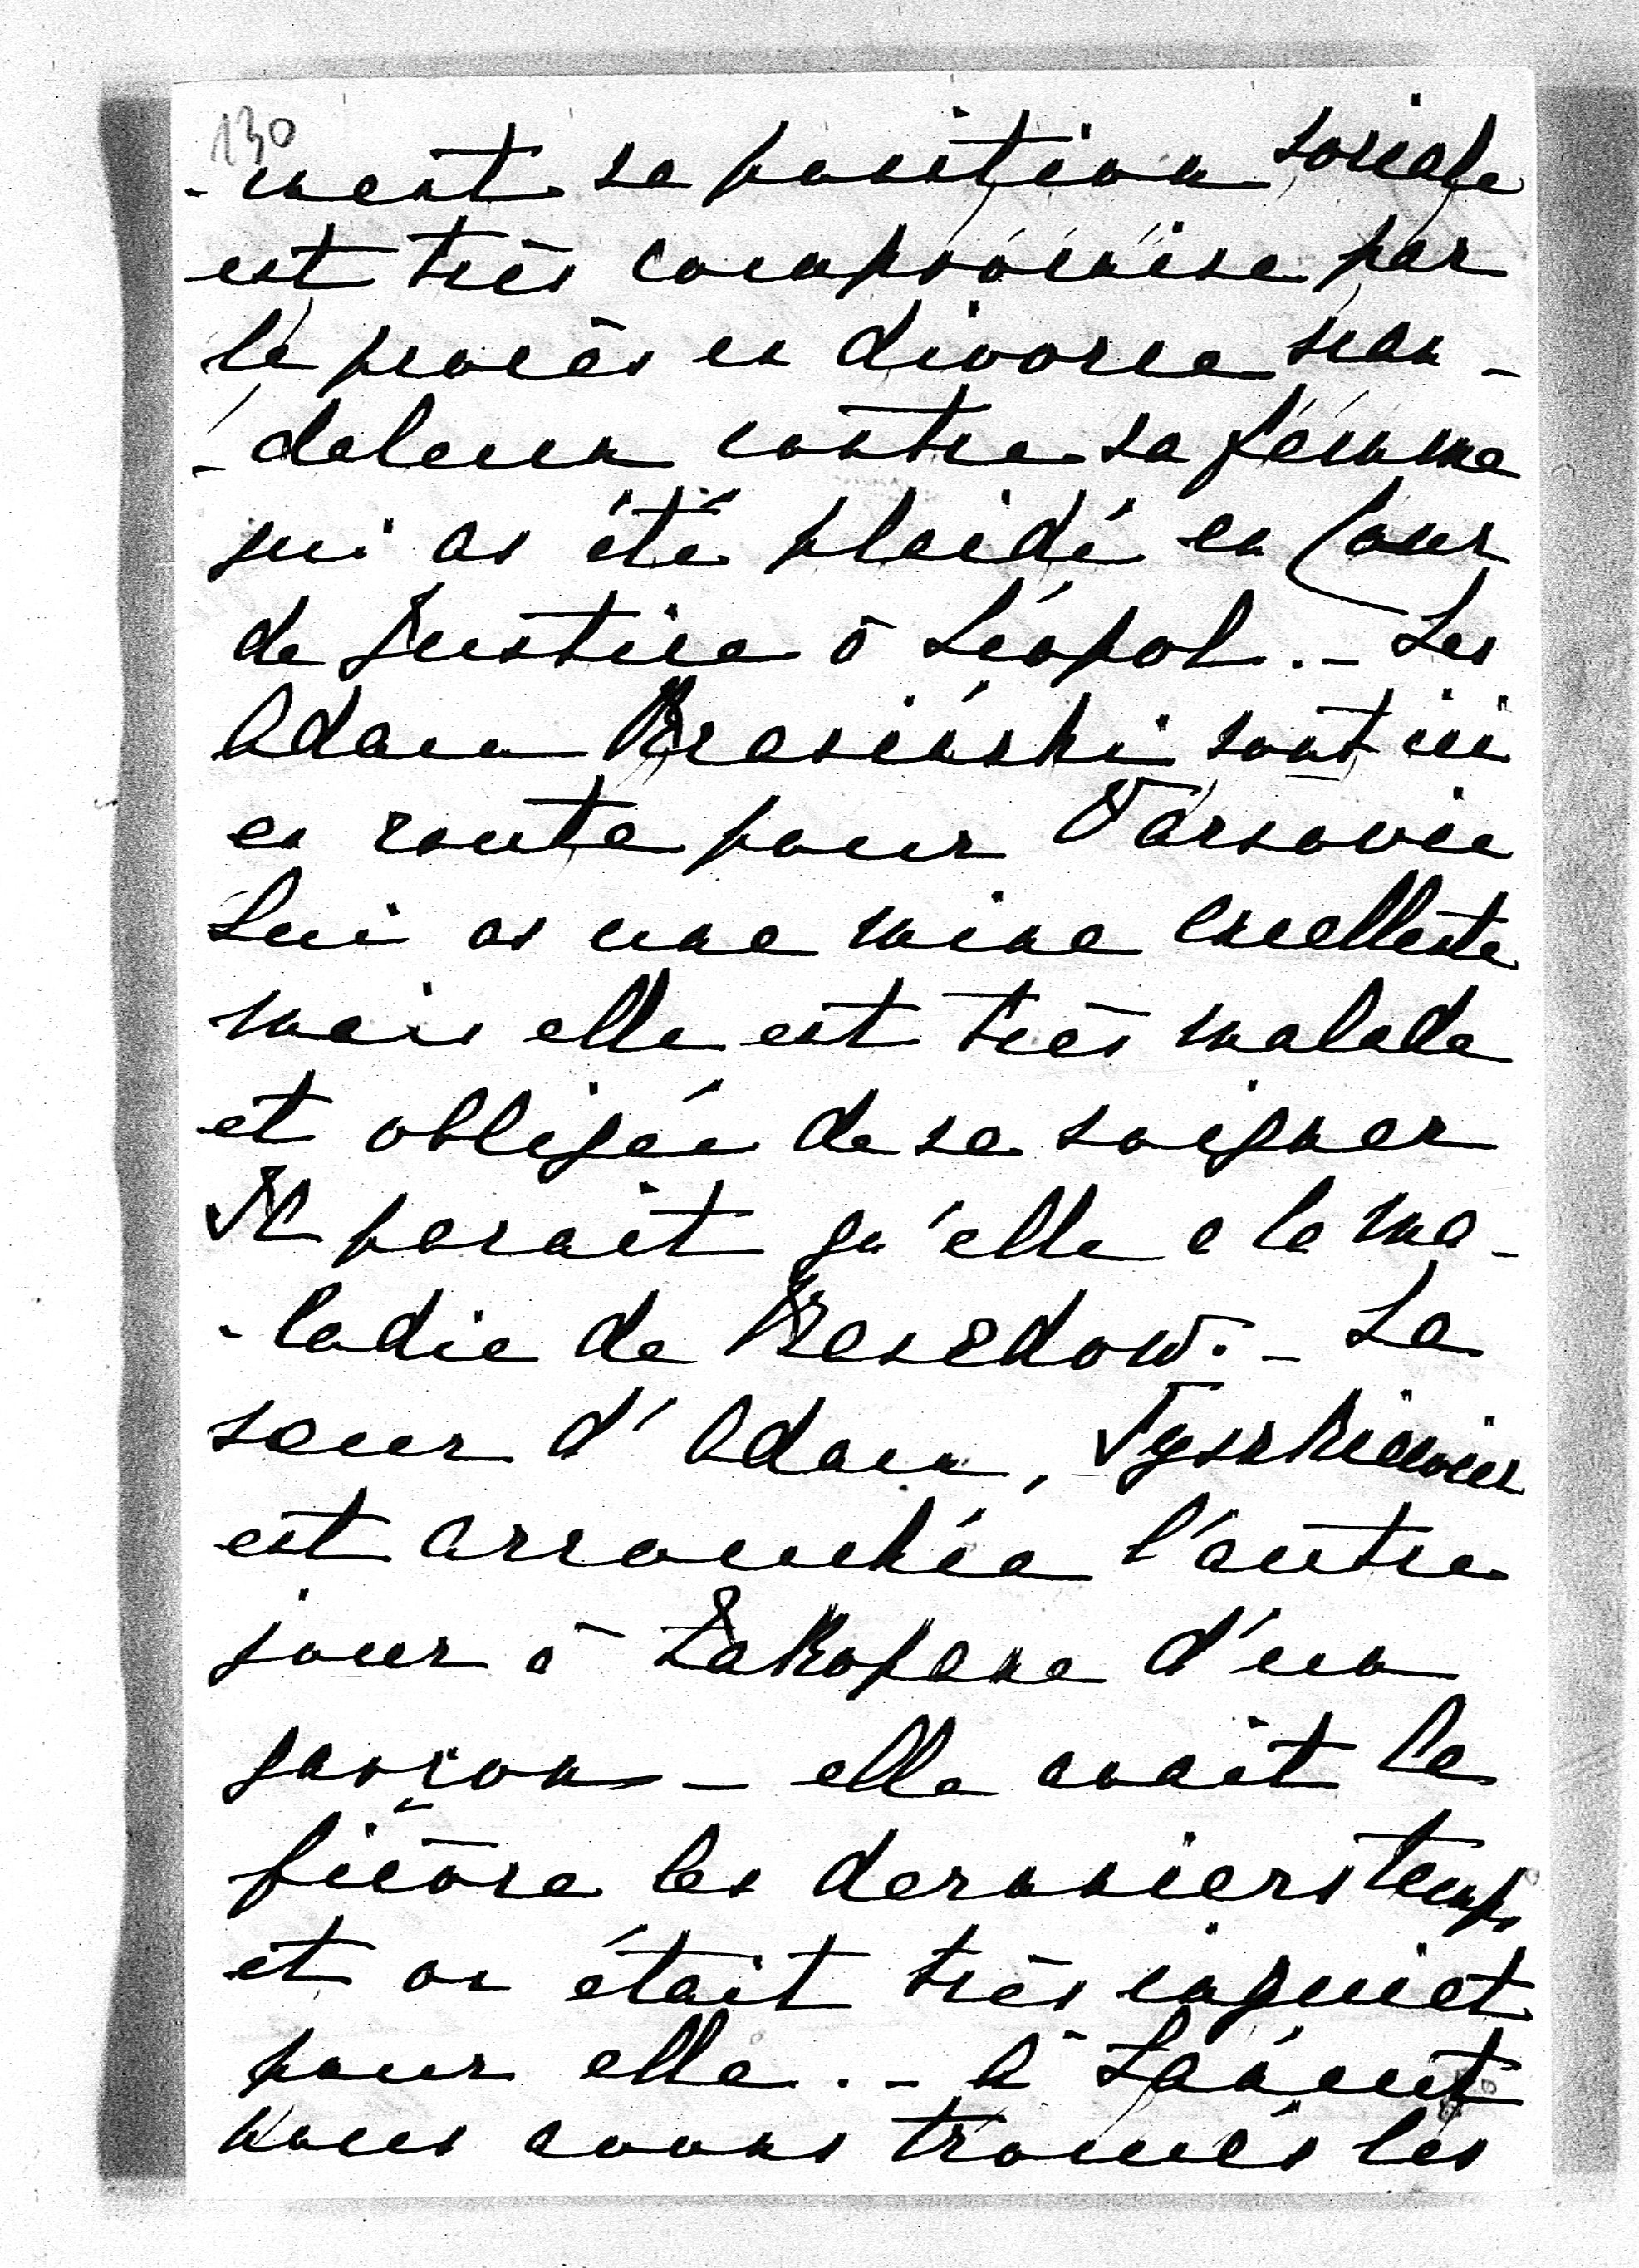 130
-ment sa position sociale
est très compromise par
le procès en divorce scan-
-daleux contre sa femme
qui as été plaidé en Cour
de Justice à Léopol. - Les
Adam Krasiński sont ici
en route pour Varsovie
Lui as une mine excellente
mais elle est très malade
et obligée de se soigner
Il parait qu'elle a la ma-
-ladie de Basedow. - La
soeur d'Adam, Tyszkiewicz
est accouchée l'autre
jour à Zakopane d'un
garçon - elle avait la
fièvre les derniers temps
et on était très inquiet
pour elle. - A Łańcut
nous avons trouvés les